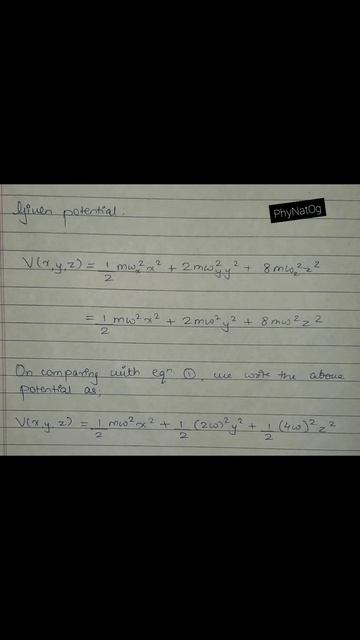 Given potential:
PhyNatOg
V(x,y,z) = 1/2 mω_x²x² + 2mω_y²y² + 8mω_z²z²
= 1/2 mω²x² + 2mω²y² + 8mω²z²
On comparing with eqn ①, we write the above
potential as;
V(x,y,z) = 1/2 mω²x² + 1/2 (2ω)²y² + 1/2 (4ω)²z²